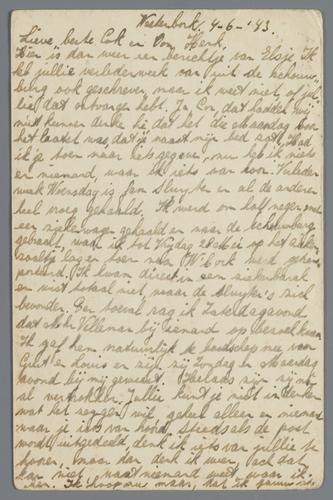 Westerbork, 4-6-'43.
Lieve, beste Cok en Oom Henk,
Hier is dan weer een berichtje van Elsje. Ik
heb jullie verleden week van uit de schouw-
burg ook geschreven, maar ik weet niet, of jul-
lie, dat ontvangen hebt. Ja Cor, dat hadden wij
niet kunnen denken hè, dat het die Maandag voor
het laatst was, dat je naast mijn bed zat. Had
ik je toen maar iets gegeven, nu heb ik niets
en niemand, waar ik iets van hoor. Verleden
week Woensdag is Jam Sluyter en al de anderen
heel vroeg gehaald. Ik werd om half negen met
een ziekenwagen gehaald en naar de schouwburg
gebracht, waar ik tot Vrijdag op het
lag en toen naar W. Bork werd getrans-
porteerd. Ik kwam direct in een ziekenbarak
en wist totaal niet, waar de Sluyter's zich
bevonden. Per toeval zag ik Zaterdagavond
dat Velleman bij iemand op bezoek kwam
Ik gaf hem natuurlijk de boodschap mee voor
en Louis en zij zijn Zondag en Maandag
avond bij mij geweest. Helaas zijn zij nu
al vertrokken. Jullie kunt je niet indenken
wat het zeggen wil, geheel alleen en niemand
waar je iets van hoort. Steeds als de post
wordt uitgedeeld, denk ik iets van jullie te
horen, maar dan denk ik weer, ach dat
kan niet, want niemand weet waar ik
ben. Ik hoop nu maar, dat ik